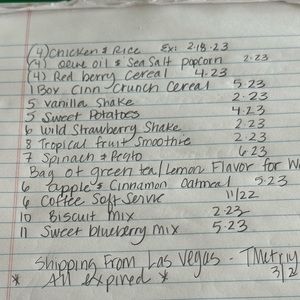 (4) Chicken & Rice Ex: 2.18.23
(4) Olive oil & Sea Salt popcorn 2.23
(4) Red berry Cereal 4.23
1 Box Cinn Crunch Cereal 5.23
5 Vanilla Shake 2.23
5 Sweet Potatoes 4.23
6 Wild Strawberry Shake 2.23
8 Tropical fruit Smoothie 2.23
7 Spinach & Pesto 6.23
Bag of green tea/Lemon Flavor for
6 apple & Cinnamon Oatmeal 5.23
6 Coffee Soft Serve 11/22
10 Biscuit mix 2.23
11 Sweet blueberry mix 5.23
Shipping From Las Vegas -
* All Expired * 3/2